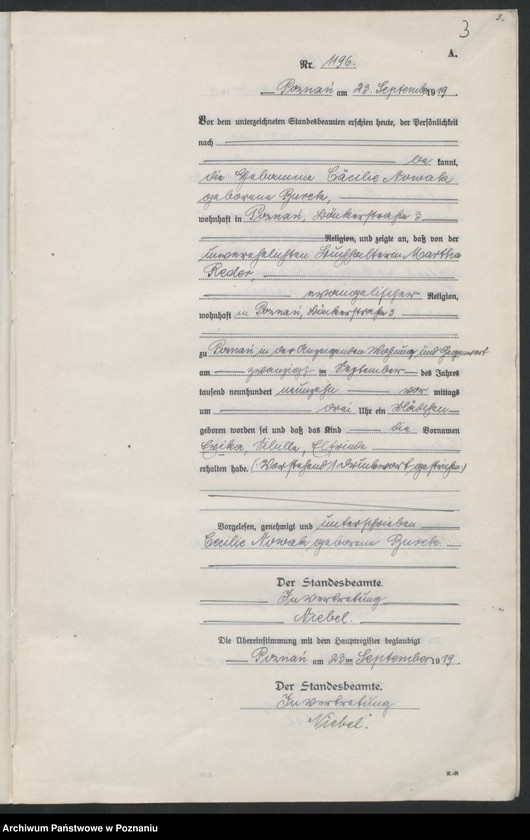 3.
3
A.
Nr. 1196.
Poznań am 23. September 1919.
Vor dem unterzeichneten Standesbeamten erschien heute, der Persönlichkeit
nach
be kannt,
die Hebamme Cäcilie Nowak
geborene
wohnhaft in Poznań, Bünkerstraße 3
Religion, und zeigte an, daß von der
unverehelichten Buchhalterin Martha
Reder,
evangelischer Religion,
wohnhaft in Poznań, Bünkerstraße 3,
zu Poznań in der Anzeigenden Wohnung und Gegenwart
am zwanzigsten September des Jahres
tausend neunhundert neunzehn vor mittags
um drei Uhr ein Mädchen
geboren worden sei und daß das Kind die Vornamen
Erika, Sibille, Elfriede
erhalten habe. (: Vorstehend 1 Druckwort gestrichen:)
Vorgelesen, genehmigt und unterschrieben
Cecilie Nowak, geborene
Der Standesbeamte.
In Vertretung
Niebel.
Die Übereinstimmung mit dem Hauptregister beglaubigt
Poznań am 23ten September 1919.
Der Standesbeamte.
In Vertretung
Niebel.
Archiwum Państwowe w Poznaniu